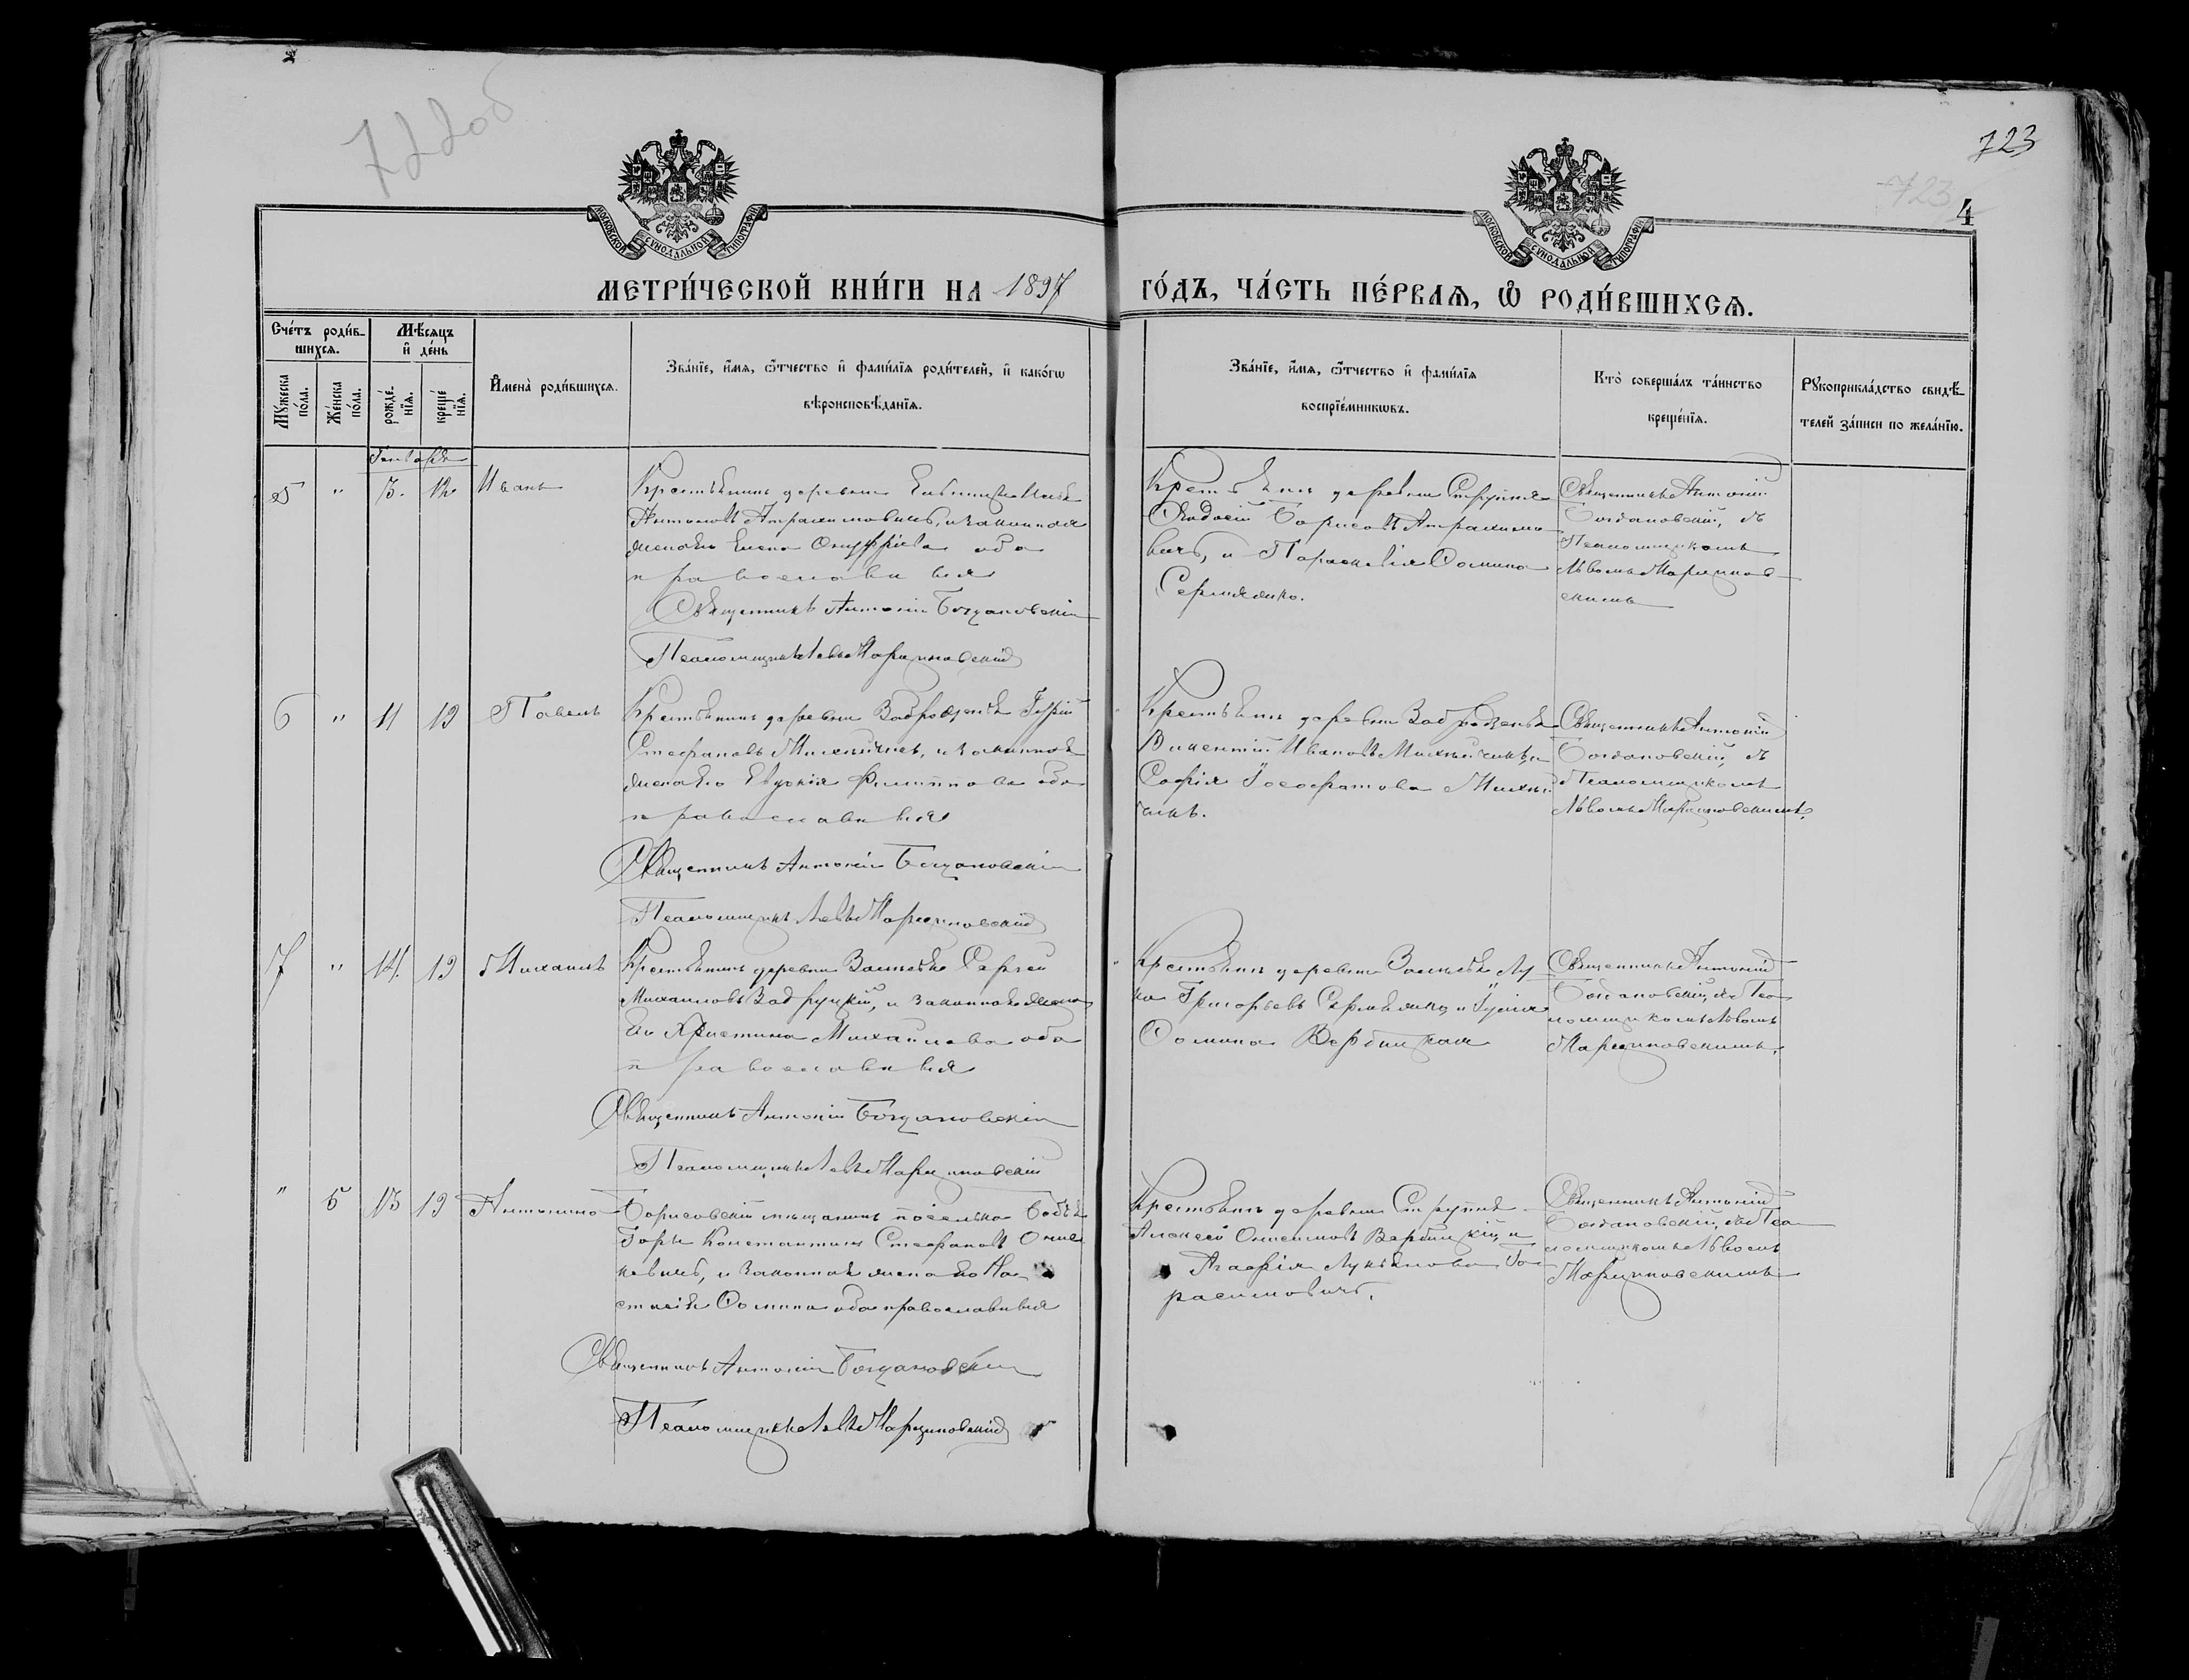 722об
723
723
4
МОСКОВСКОЙ СУНОДАЛЬНОЙ ТИПОГРАФІИ
МОСКОВСКОЙ СУНОДАЛЬНОЙ ТИПОГРАФІИ
МЕТРИ́ЧЕСКОЙ КНИ́ГИ НА 1897 ГО́ДЪ, ЧА́СТЬ ПЕ́РВАѦ, Ѿ РОДИ́ВШИХСѦ.
Сче́тъ роди́в-
шихсѧ.
Мѣ́сѧцъ
и҆ де́нь
Мꙋ́жеска
по́ла.
Же́нска
по́ла.
рожде́-
нїѧ.
креще́
нїѧ.
И҆мена̀ роди́вшихсѧ.
Зва́нїе, и҆́мѧ, ѻ҆́тчество и҆ фами́лїѧ роди́телей, и҆ како́гѡ
вѣроисповѣ́данїѧ.
Зва́нїе, и҆́мѧ, ѻ҆́тчество и҆ фами́лїѧ
воспрїе́мникѡвъ.
Кто̀ соверша́лъ та́инство
креще́нїѧ.
Рꙋкоприкла́дство свидѣ́-
телей за́писи по жела́нїю.
Января
5 " 7. 12. Иванъ
Крестьянинъ деревни
Антоновъ Атрахимовичъ, и законная
жена его Елена Онуфріева оба
православныя
Священникъ Антоній Богдановскій
Псаломщикъ Левъ Марциновскій
Крестьянинъ деревни Струпня
Ѳеодосій Борисовъ Атрахимо
вичъ, и Параскевія Ѳомина
Сермяжко.
Священникъ Антоній
Богдановскій, съ
Псаломщикомъ
Львомъ Марцинов-
скимъ
6 " 11 19 Павелъ
Крестьянинъ деревни Забродженье Гурій
Стефановъ Михничикъ, и законная
жена его Евдокія Филиппова оба
православныя
Священникъ Антоній Богдановскій
Псаломщикъ Левъ Марциновскій
Крестьянинъ деревни Забродженья
Викентій Ивановъ Михничикъ, и
Софія Іосафатова Михни
чикъ.
Священникъ Антоній
Богдановскій, съ
Псаломщикомъ
Львомъ Марциновскимъ.
7 " 14. 19 Михаилъ
Крестьянинъ деревни Сергей
Михаиловъ Забруцкій, и законная жена
его Христина Михайлова оба
православныя
Священникъ Антоній Богдановскій
Псаломщикъ Левъ Марциновскій
Крестьянинъ деревни Лу
ка Григорьевъ Сермяжко, и Іулія
Ѳомина Вербицкая
Священникъ Антоній
Богдановскій, съ Пса
ломщикомъ Львомъ
Марциновскимъ.
" 5 13 19 Антонина
Борисовскій мѣщанинъ посёлка
Горы Константинъ Стефановъ
кевичъ, и законная жена его На
стасія Ѳомина оба православныя
Священникъ Антоній Богдановскій
Псаломщикъ Левъ Марциновскій
Крестьянинъ деревни Струпня
Алексей Онисимовъ Вербицкій, и
Агафія Лукьянова Га-
расимовичъ.
Священникъ Антоній
Богдановскій, съ Пса
ломщикомъ Львомъ
Марциновскимъ